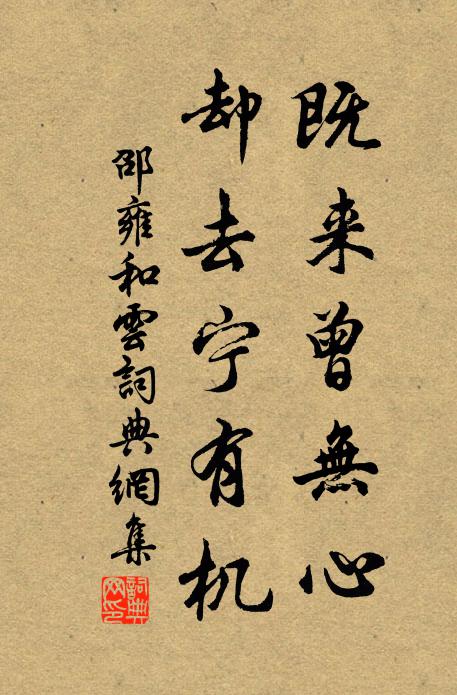 既来曾無心
却去宁有机
邵雍和雲詞典網集
詞典网印